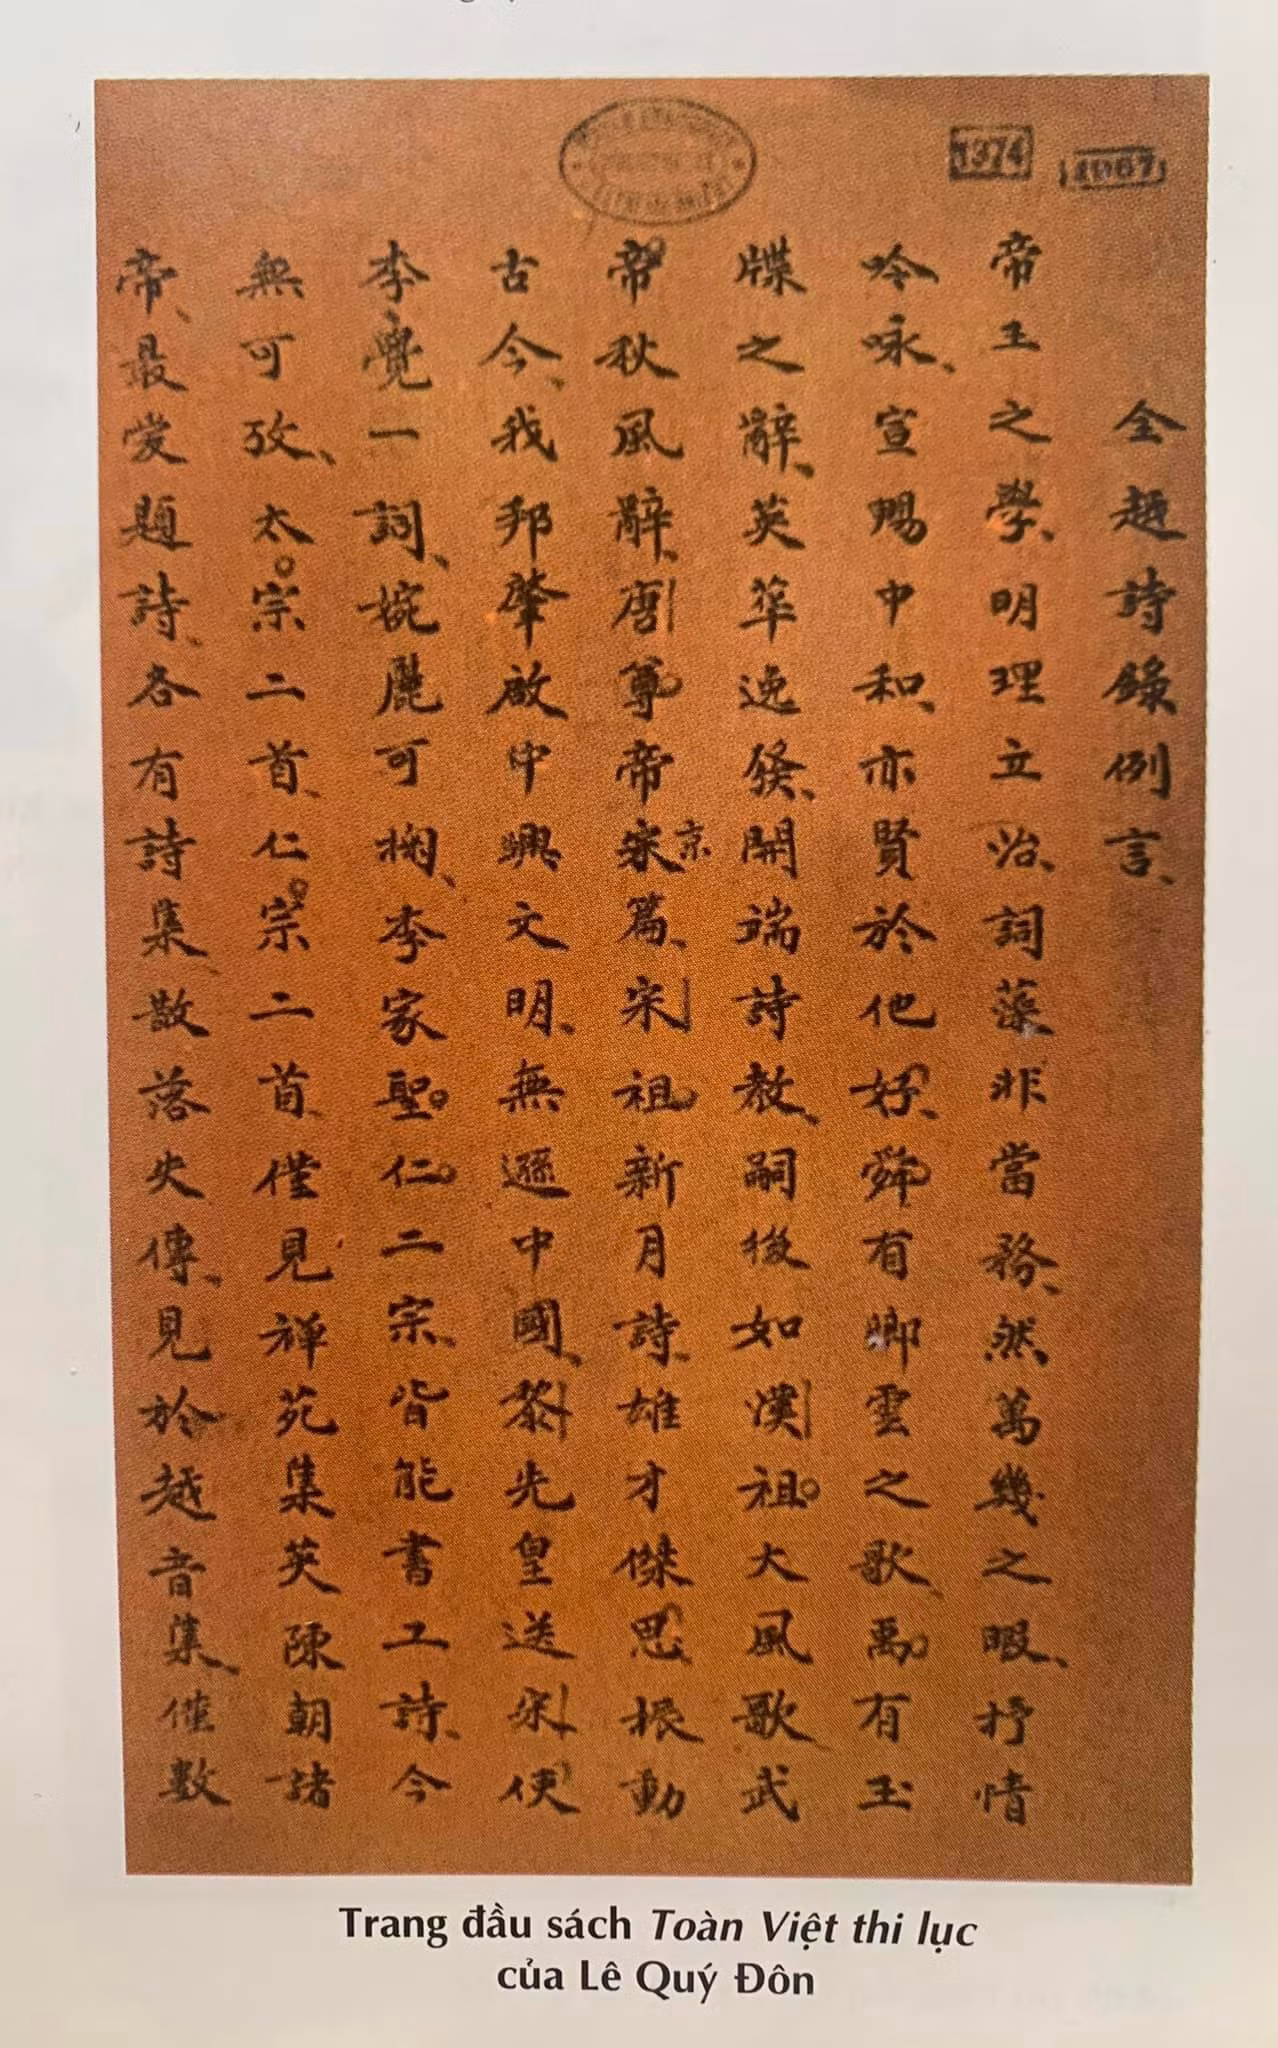 1374
全越詩錄例言
帝王之學明理立治詞藻非當務然萬幾之暇抒情
吟咏宣暢中和亦賢於他好舜有卿雲之歌禹有玉
牒之辭英華逸發開端詩教嗣後如漢祖大風歌武
帝秋風辭唐尊帝京篇宋祖新月詩雄才傑思振動
古今我邦肇啟中興文明無遜中國黎先皇送宋使
李覺一詞婉麗可掬李家聖仁二宗皆能書工詩今
無可攷太宗二首仁宗二首僅見禅苑集英陳朝諸
帝最愛題詩各有詩集散落失傳見於越音集僅數
Trang đầu sách Toàn Việt thi lục
của Lê Quý Đôn